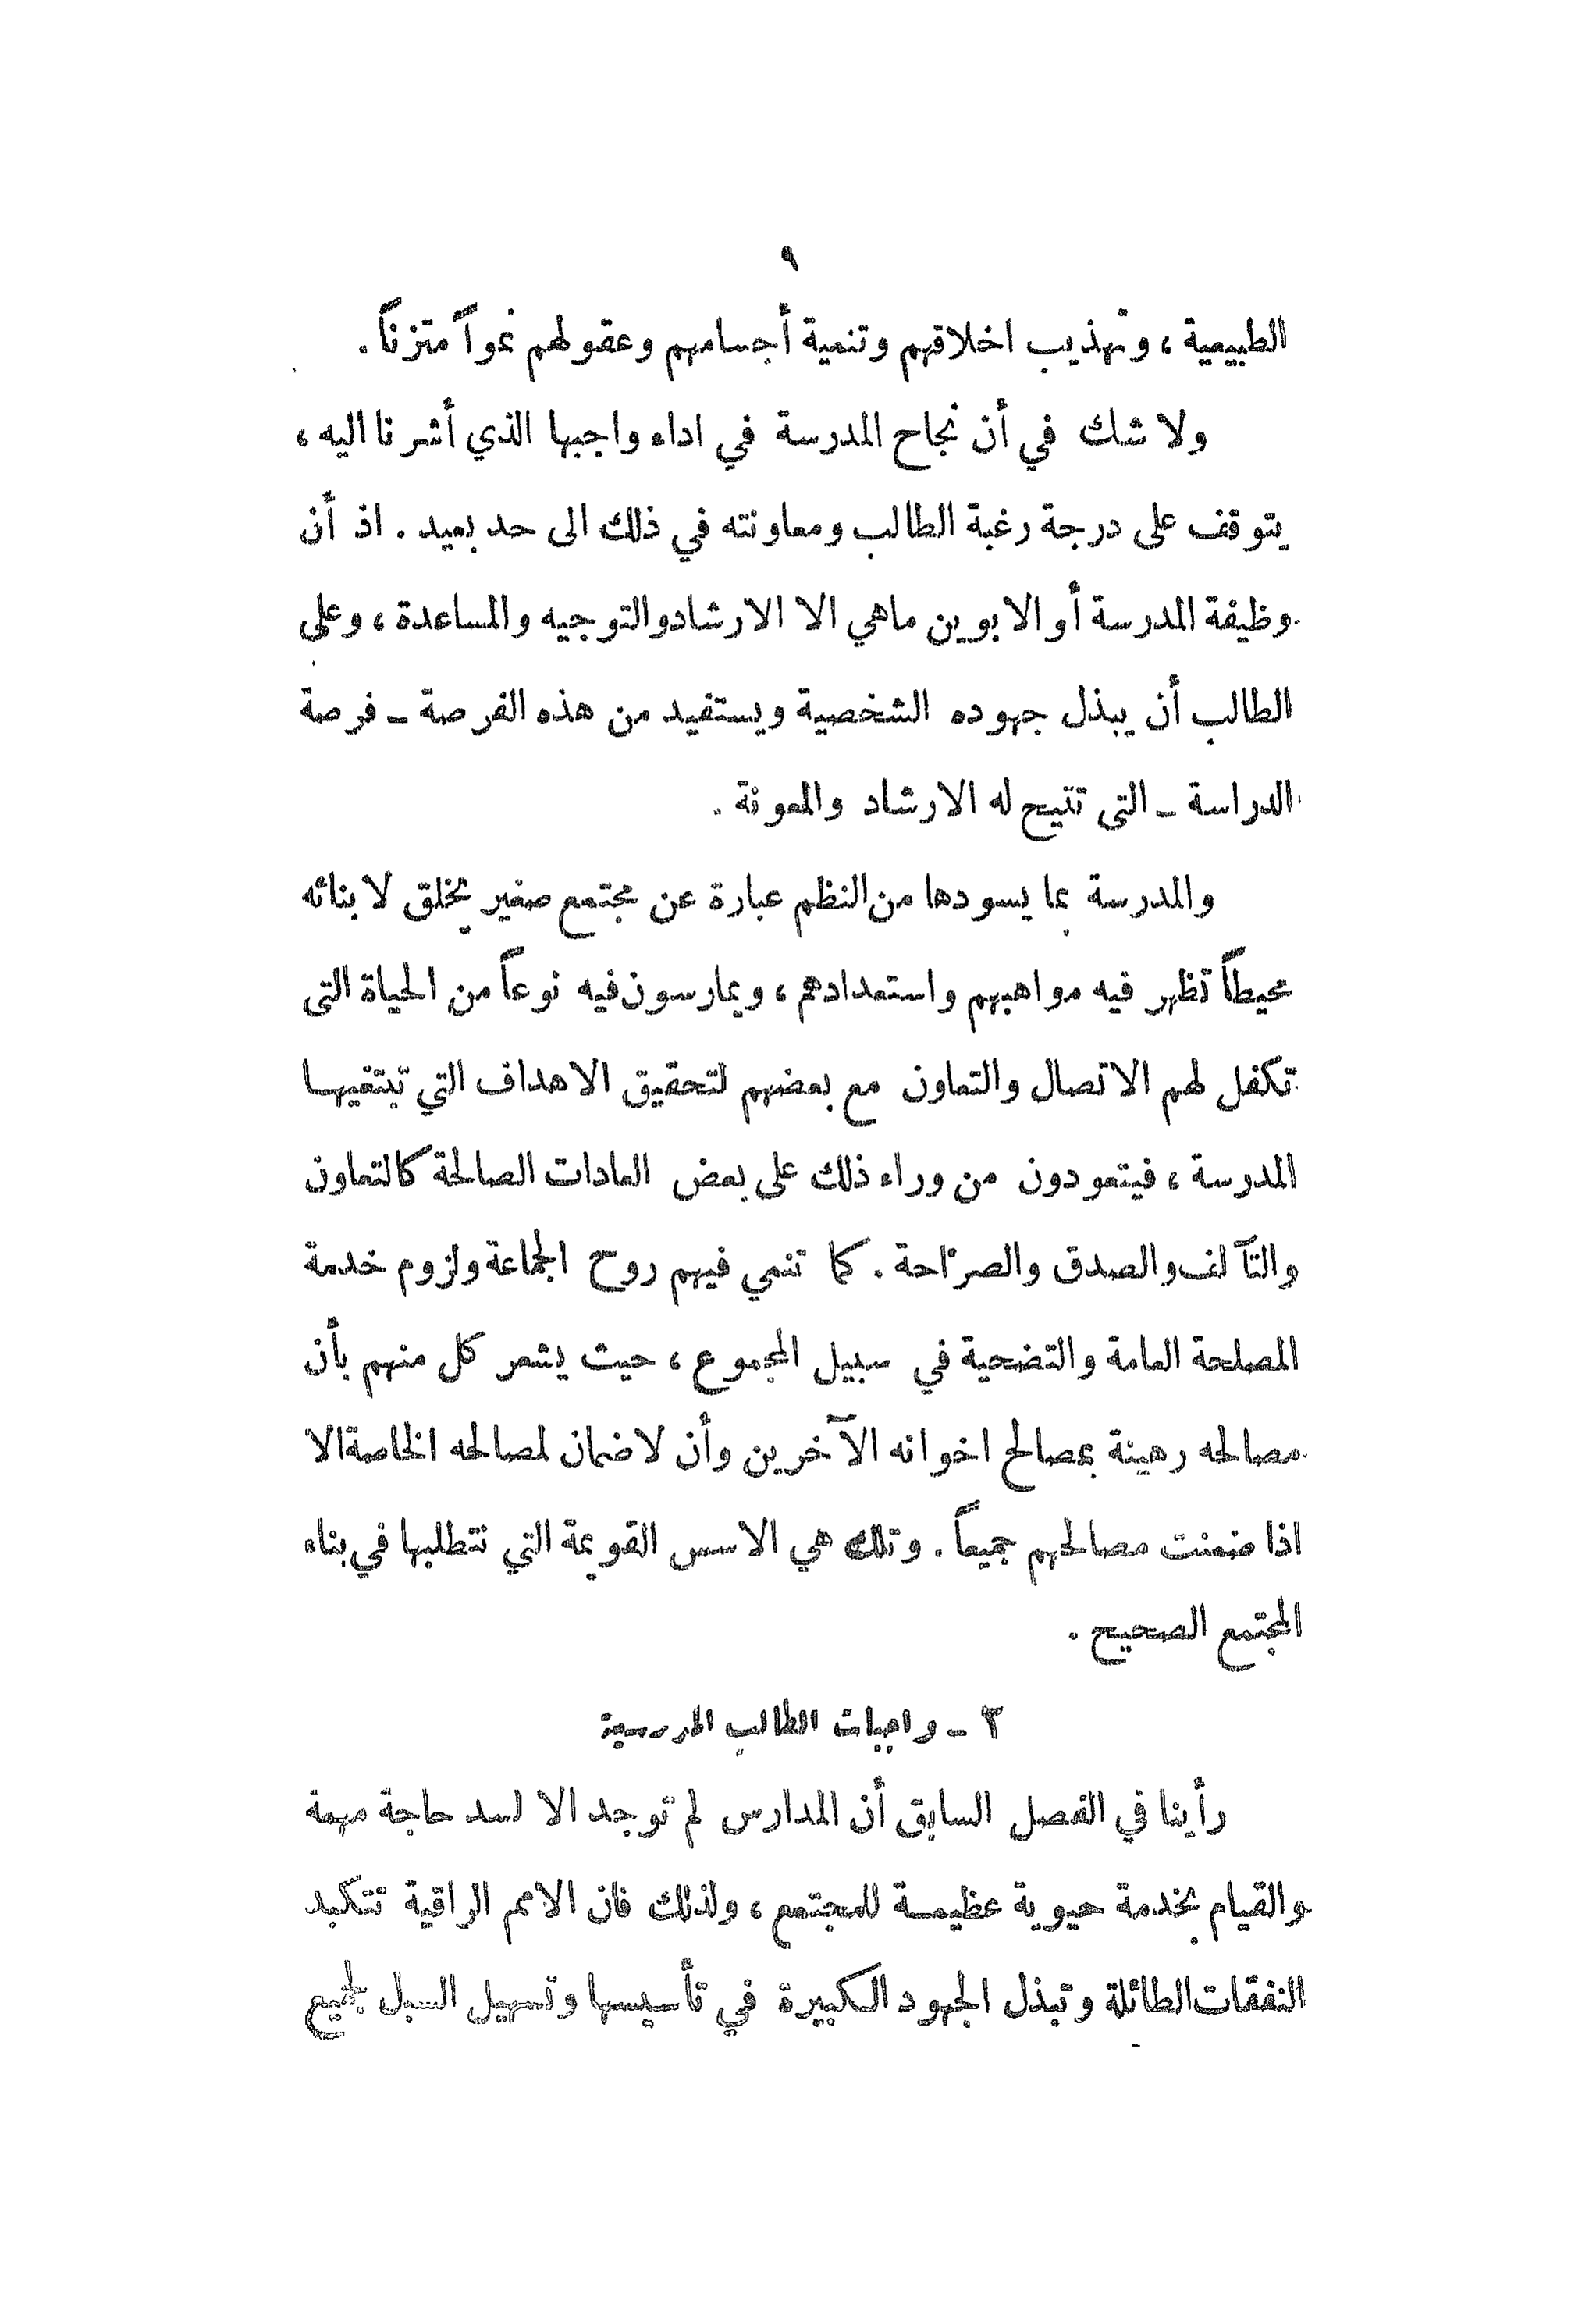 ٩
الطبيعية ، وتهذيب اخلاقهم وتنمية أجسامهم وعقولهم نمواً متزناً .
ولا شك في أن نجاح المدرسة في اداء واجبها الذي أشرنا اليه ،
يتوقف على درجة رغبة الطالب ومعاونته في ذلك الى حد بعيد . اذ أن
وظيفة المدرسة أو الابوين ماهي الا الارشاد والتوجيه والمساعدة ، وعلى
الطالب أن يبذل جهوده الشخصية ويستفيد من هذه الفرصة ـ فرصة
الدراسة ـ التى تتيح له الارشاد والمعونة .
والمدرسة بما يسودها من النظم عبارة عن مجتمع صغير يخلق لابنائه
محيطاً تظهر فيه مواهبهم واستعدادهم ، ويمارسون فيه نوعاً من الحياة التى
تكفل لهم الاتصال والتعاون مع بعضهم لتحقيق الاهداف التي تبتغيهـا
المدرسة ، فيتعودون من وراء ذلك على بعض العادات الصالحة كالتعاون
والتآلف والصدق والصراحة . كما تنمي فيهم روح الجماعة ولزوم خدمة
المصلحة العامة والتضحية في سبيل المجموع ، حيث يشعر كل منهم بأن
مصالحه رهينة بمصالح اخوانه الآخرين وأن لاضمان لمصالحه الخاصة الا
اذا ضمنت مصالحهم جميعاً . وتلك هي الاسس القويمة التي نتطلبها في بناء
المجتمع الصحيح .
٢ ـ واجبات الطالب المدرسية
رأينا في الفصل السابق أن المدارس لم توجد الا لسد حاجة مهمة
والقيام بخدمة حيوية عظيمـة للمجتمع ، ولذلك فان الامم الراقية تتكبد
النفقات الطائلة وتبذل الجهود الكبيرة في تأسيسها وتسهيل السبل لجميع